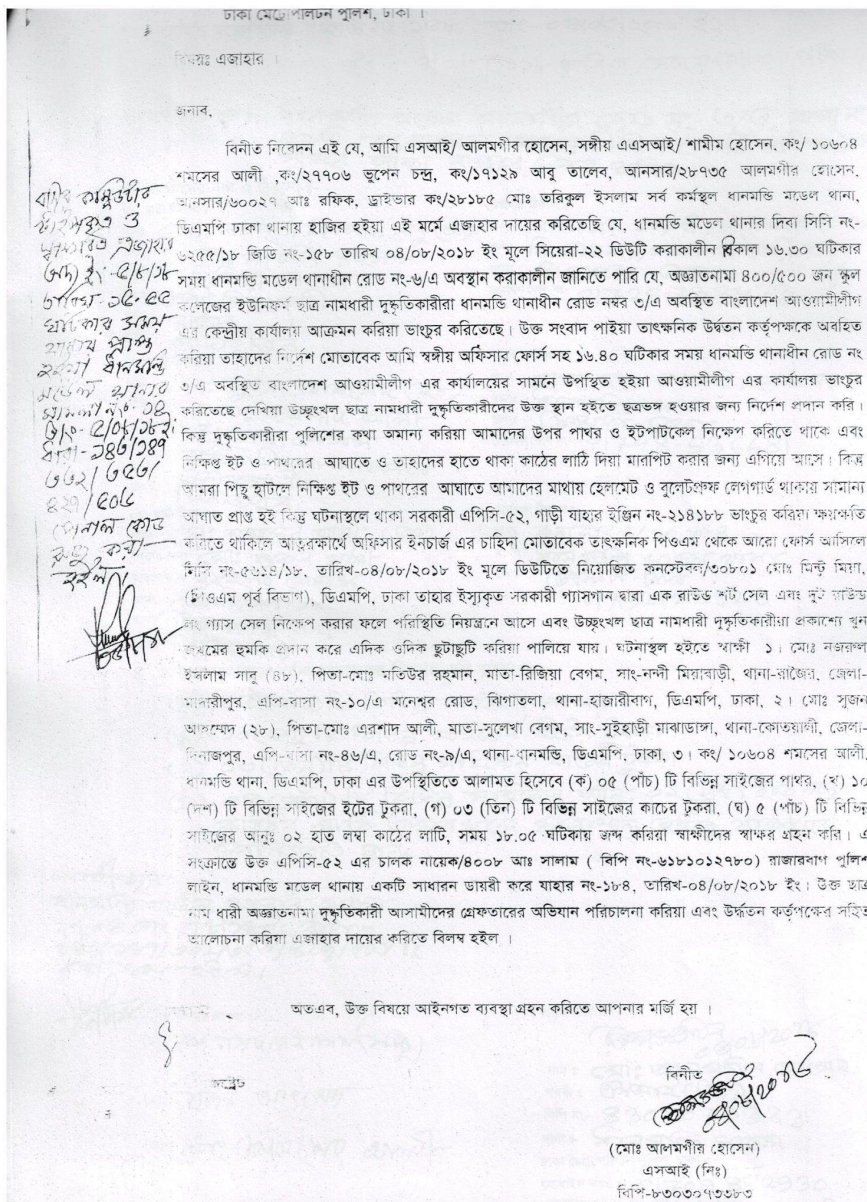 ঢাকা মেট্রোপলিটন পুলিশ, ঢাকা ।
বিষয়ঃ এজাহার ।
জনাব,
বিনীত নিবেদন এই যে, আমি এসআই/ আলমগীর হোসেন, সঙ্গীয় এএসআই/ শামীম হোসেন, কং/ ১০৬০৪
শমসের আলী ,কং/২৭৭০৬ ভুপেন চন্দ্র, কং/১৭১২৯ আবু তালেব, আনসার/২৮৭৩৫ আলমগীর হোসেন,
আনসার/৬০০২৭ আঃ রফিক, ড্রাইভার কং/২৮১৮৫ মোঃ তরিকুল ইসলাম সর্ব কর্মস্থল ধানমন্ডি মডেল থানা,
ডিএমপি ঢাকা থানায় হাজির হইয়া এই মর্মে এজাহার দায়ের করিতেছি যে, ধানমন্ডি মডেল থানার দিবা সিসি নং-
৬২৫৫/১৮ জিডি নং-১৫৮ তারিখ ০৪/০৮/২০১৮ ইং মূলে সিয়েরা-২২ ডিউটি করাকালীন বিকাল ১৬.৩০ ঘটিকার
সময় ধানমন্ডি মডেল থানাধীন রোড নং-৬/এ অবস্থান করাকালীন জানিতে পারি যে, অজ্ঞাতনামা ৪০০/৫০০ জন স্কুল
কলেজের ইউনিফর্ম ছাত্র নামধারী দুষ্কৃতিকারীরা ধানমন্ডি থানাধীন রোড নম্বর ৩/এ অবস্থিত বাংলাদেশ আওয়ামীলীগ
এর কেন্দ্রীয় কার্যালয় আক্রমন করিয়া ভাংচুর করিতেছে। উক্ত সংবাদ পাইয়া তাৎক্ষনিক উর্দ্ধতন কর্তৃপক্ষকে অবহিত
করিয়া তাহাদের নির্দেশ মোতাবেক আমি স্বঙ্গীয় অফিসার ফোর্স সহ ১৬.৪০ ঘটিকার সময় ধানমন্ডি থানাধীন রোড নং
৩/এ অবস্থিত বাংলাদেশ আওয়ামীলীগ এর কার্যালয়ের সামনে উপস্থিত হইয়া আওয়ামীলীগ এর কার্যালয় ভাংচুর
করিতেছে দেখিয়া উচ্ছৃংখল ছাত্র নামধারী দুষ্কৃতিকারীদের উক্ত স্থান হইতে ছত্রভঙ্গ হওয়ার জন্য নির্দেশ প্রদান করি।
কিন্তু দুষ্কৃতিকারীরা পুলিশের কথা অমান্য করিয়া আমাদের উপর পাথর ও ইটপাটকেল নিক্ষেপ করিতে থাকে এবং
নিক্ষিপ্ত ইট ও পাথরের আঘাতে ও তাহাদের হাতে থাকা কাঠের লাঠি দিয়া মারপিট করার জন্য এগিয়ে আসে। কিন্তু
আমরা পিছু হাটলে নিক্ষিপ্ত ইট ও পাথরের আঘাতে আমাদের মাথায় হেলমেট ও বুলেটপ্রুফ লেগগার্ড থাকায় সামান্য
আঘাত প্রাপ্ত হই কিন্তু ঘটনাস্থলে থাকা সরকারী এপিসি-৫২, গাড়ী যাহার ইঞ্জিন নং-২১৪১৮৮ ভাংচুর করিয়া ক্ষয়ক্ষতি
করিতে থাকিলে আত্মরক্ষার্থে অফিসার ইনচার্জ এর চাহিদা মোতাবেক তাৎক্ষনিক পিওএম থেকে আরো ফোর্স আসিলে
সিসি নং-৫৬১৪/১৮, তারিখ-০৪/০৮/২০১৮ ইং মূলে ডিউটিতে নিয়োজিত কনস্টেবল/৩০৮০১ মোঃ মিন্টু মিয়া,
(পিওএম পূর্ব বিভাগ), ডিএমপি, ঢাকা তাহার ইস্যুকৃত সরকারী গ্যাসগান দ্বারা এক রাউন্ড শর্ট সেল এবং দুই রাউন্ড
লং গ্যাস সেল নিক্ষেপ করার ফলে পরিস্থিতি নিয়ন্ত্রনে আসে এবং উচ্ছৃংখল ছাত্র নামধারী দুষ্কৃতিকারীরা প্রকাশ্যে খুন
জখমের হুমকি প্রদান করে এদিক ওদিক ছুটাছুটি করিয়া পালিয়ে যায়। ঘটনাস্থল হইতে স্বাক্ষী ১। মোঃ নজরুল
ইসলাম সাবু (৪৮), পিতা-মোঃ মতিউর রহমান, মাতা-রিজিয়া বেগম, সাং-নন্দী মিয়াবাড়ী, থানা-রাজৈর, জেলা-
মাদারীপুর, এপি-বাসা নং-১০/এ মনেশ্বর রোড, ঝিগাতলা, থানা-হাজারীবাগ, ডিএমপি, ঢাকা, ২। মোঃ সুজন
আহম্মেদ (২৮), পিতা-মোঃ এরশাদ আলী, মাতা-সুলেখা বেগম, সাং-সুইহাড়ী মাঝাডাঙ্গা, থানা-কোতয়ালী, জেলা-
দিনাজপুর, এপি-বাসা নং-৪৬/এ, রোড নং-৯/এ, থানা-ধানমন্ডি, ডিএমপি, ঢাকা, ৩। কং/ ১০৬০৪ শমসের আলী,
ধানমন্ডি থানা, ডিএমপি, ঢাকা এর উপস্থিতিতে আলামত হিসেবে (ক) ০৫ (পাঁচ) টি বিভিন্ন সাইজের পাথর, (খ) ১০
(দশ) টি বিভিন্ন সাইজের ইটের টুকরা, (গ) ০৩ (তিন) টি বিভিন্ন সাইজের কাচের টুকরা, (ঘ) ৫ (পাঁচ) টি বিভিন্ন
সাইজের আনুঃ ০২ হাত লম্বা কাঠের লাটি, সময় ১৮.০৫ ঘটিকায় জব্দ করিয়া স্বাক্ষীদের স্বাক্ষর গ্রহন করি। এ
সংক্রান্তে উক্ত এপিসি-৫২ এর চালক নায়েক/৪০০৮ আঃ সালাম ( বিপি নং-৬১৮১০১২৭৮০) রাজারবাগ পুলিশ
লাইন, ধানমন্ডি মডেল থানায় একটি সাধারন ডায়রী করে যাহার নং-১৮৪, তারিখ-০৪/০৮/২০১৮ ইং। উক্ত ছাত্র
নাম ধারী অজ্ঞাতনামা দুষ্কৃতিকারী আসামীদের গ্রেফতারের অভিযান পরিচালনা করিয়া এবং উর্দ্ধতন কর্তৃপক্ষের সহিত
আলোচনা করিয়া এজাহার দায়ের করিতে বিলম্ব হইল ।
অতএব, উক্ত বিষয়ে আইনগত ব্যবস্থা গ্রহন করিতে আপনার মর্জি হয় ।
বাদীর কম্পিউটার
টাইপকৃত ও
স্বাক্ষরিত এজাহার
অদ্য ইং- ৫/৮/১৮
তারিখ- ১৫.৫৫
ঘটিকার সময়
থানায় প্রাপ্ত
হইয়া ধানমন্ডি
মডেল থানার
মামলা নং- ১৫
তাং- ৫/০৮/১৮ ইং
ধারা- ১৪৩/১৪৭
৩৩২/৩৫৩/
৪২৭/৫০৬
পেনাল কোড
রুজু করা
হইল।
বিনীত
০৫/০৮/২০১৮
(মোঃ আলমগীর হোসেন)
এসআই (নিঃ)
বিপি-৮৩০৩০৭৩৩৮৩